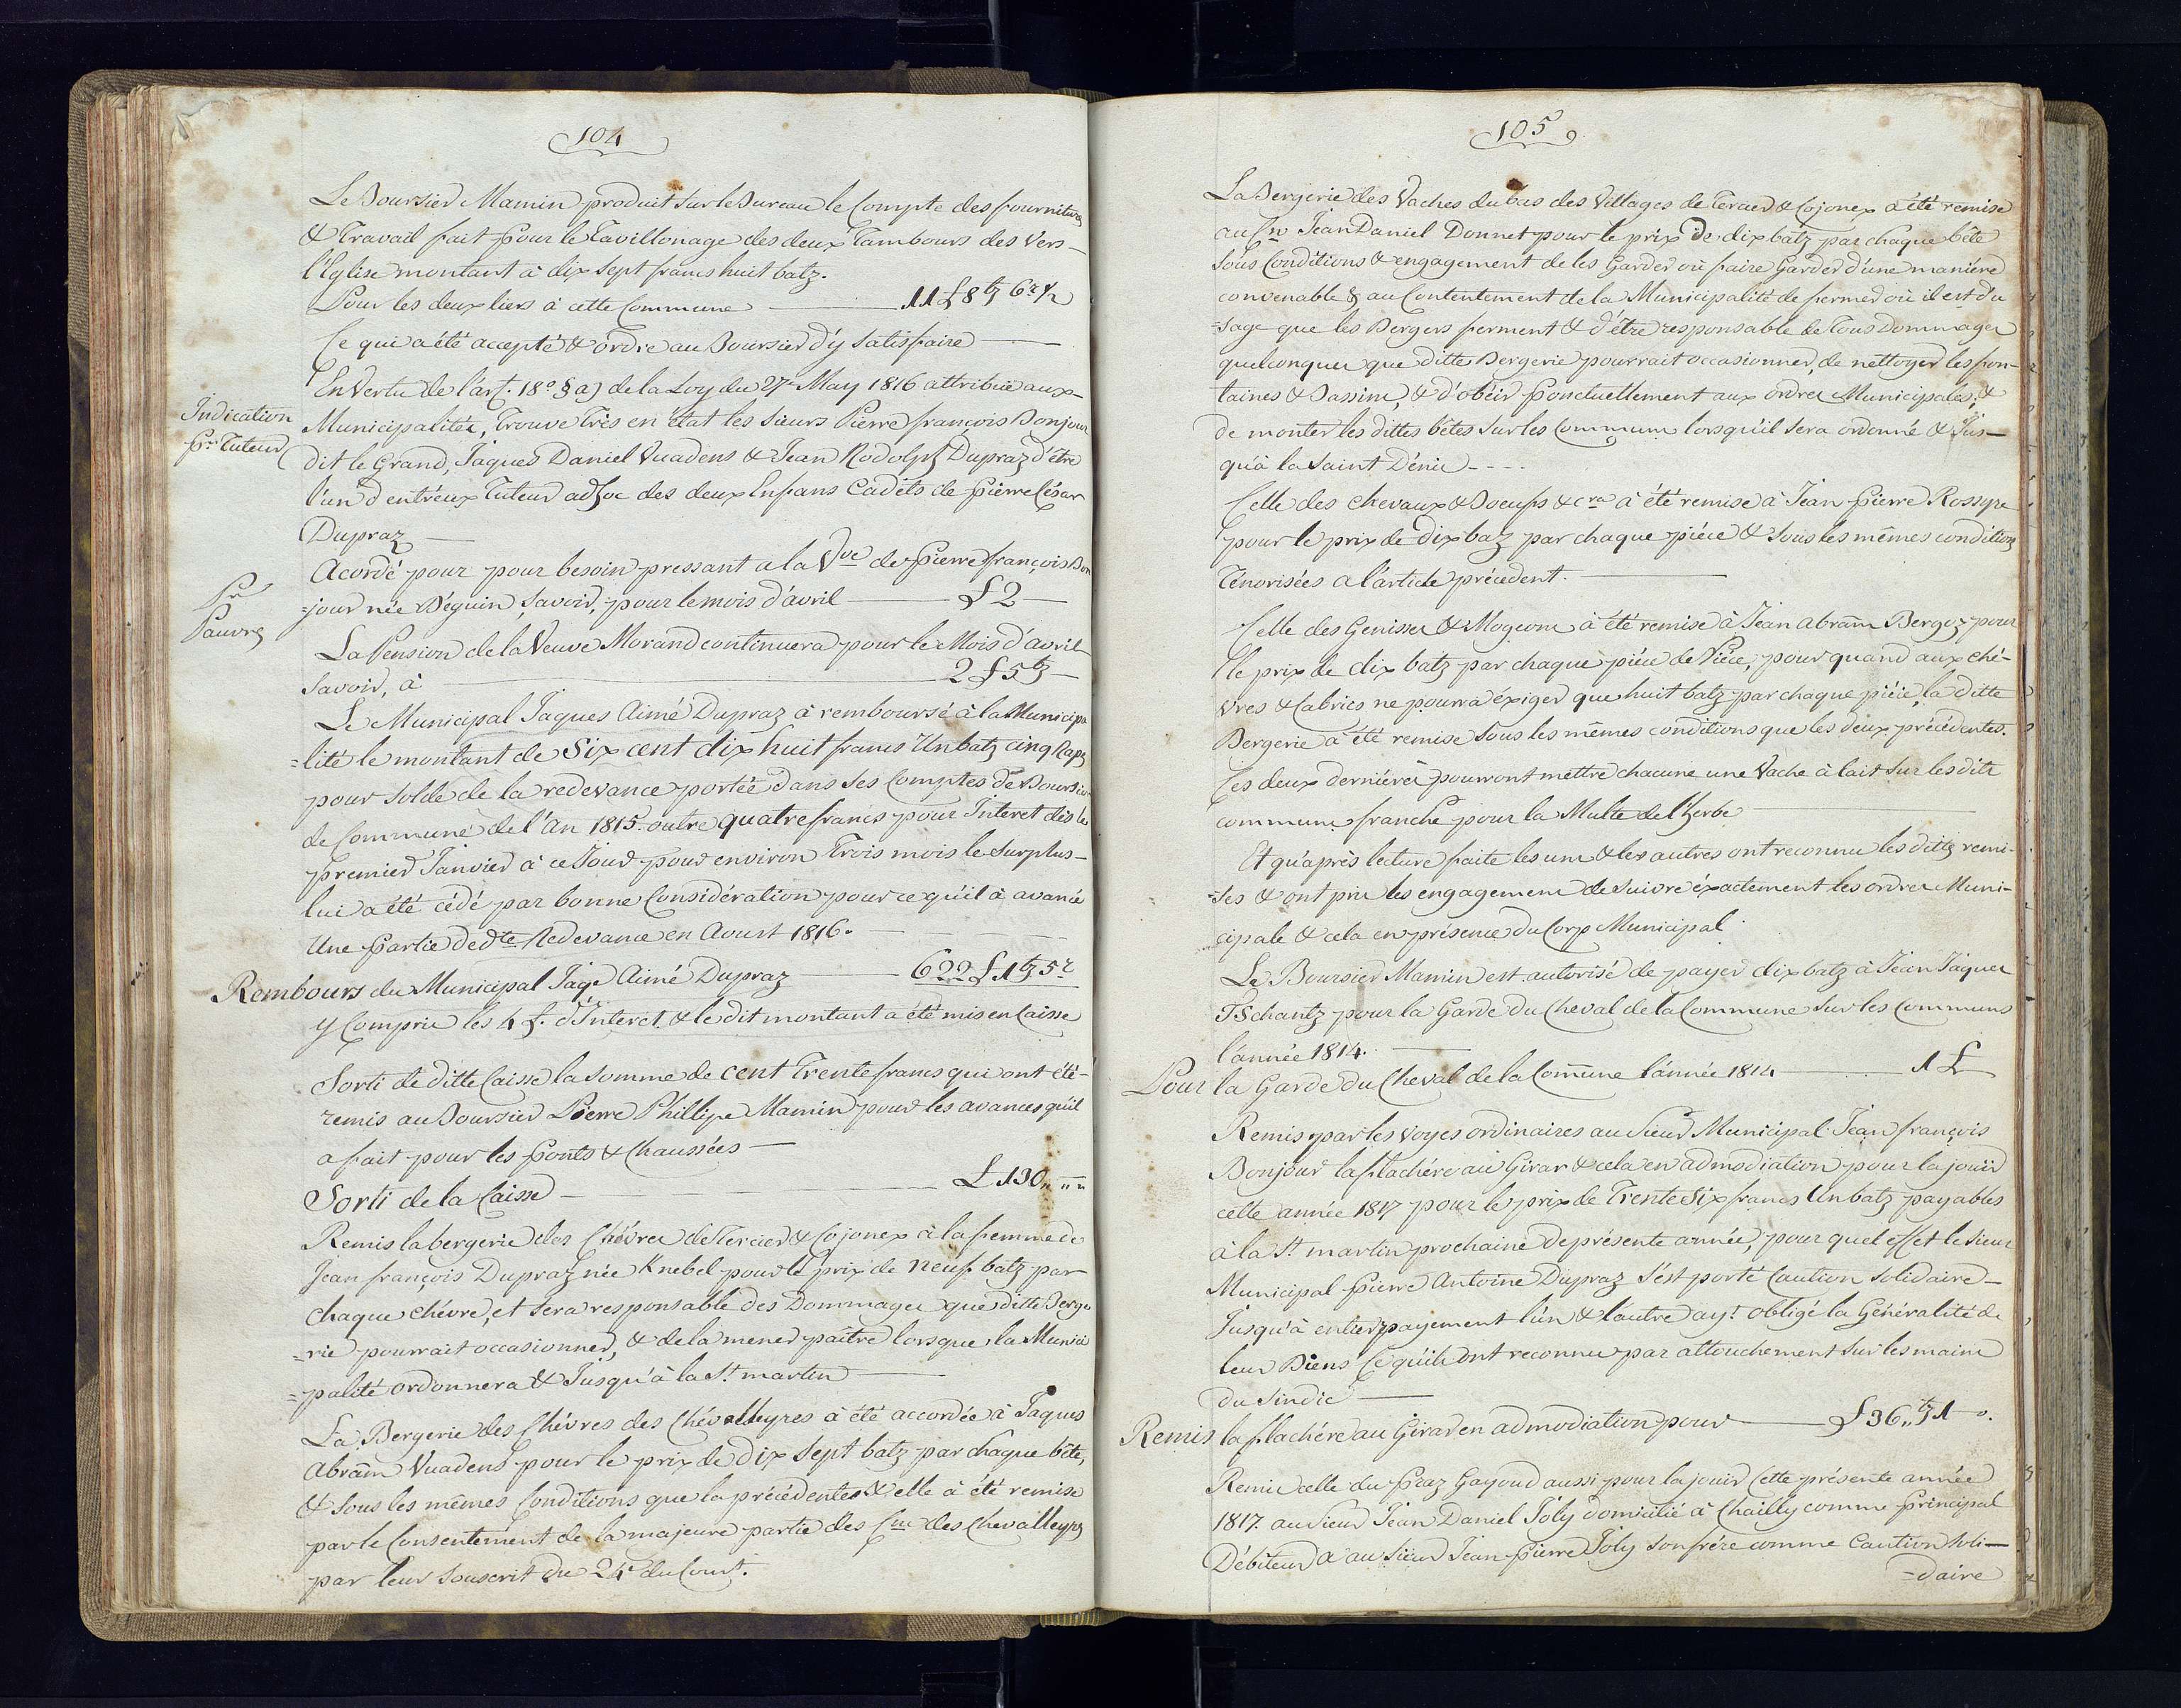 104
Le Boursier Mamin produit sur le Bureau le Compte des fournitures
& Travail fait pour le Tavillonage des deux Tambours des Vers-
l'Eglise montant à dix sept francs huit batz.
Pour les deux tiers à cette Commune — 11 £ 8 tz 6 r ½
Ce qui a été accepté & ordre au Boursier d'y satisfaire —
En Vertu de l'art. 18° § a) de la Loy du 27 May 1816 attribuée aux
Indication
pr. Tuteur
Municipalités, Trouve Très en état les sieurs Pierre françois Bonjour
dit le Grand, Jaques Daniel Vuadens & Jean Rodolph Dupraz d'être
l'un d'entr'eux Tuteur ad hoc des deux Enfans Cadets de Pierre César
Dupraz —
Acordé pour pour besoin pressant a la Vve de Pierre françois Bon
Pauvres
=jour née Déguin, Savoir, pour le mois d'avril — £ 2 —
La Pension de la Veuve Morand continuera pour le Mois d'avril
Savoir, à — 2 £ 5 tz —
Le Municipal Jaques Aimé Dupraz à remboursé à la Municipa
=lité le montant de Six cent dix huit francs Un batz cinq Raps
pour solde de la redevance portée dans ses Comptes de Boursier
de Commune de l'An 1815. outre quatre francs pour Interet dès le
premier Janvier à ce Jour pour environ Trois mois le surplus-
lui a été cédé par bonne Considération pour ce qu'il à avancé
Une Partie de dte Redevance en Aoust 1816. —
Rembours du Municipal Jaqe Aimé Dupraz — 622 £ 1 tz 5 r
y Compris les 4 f. d'Interet. & le dit montant a été mis en Caisse
Sorti de ditte Caisse la somme de cent Trente francs qui ont été-
remis au Boursier Pierre Phillipe Mamin pour les avances qu'il
a fait pour les ponts & Chaussées —
Sorti de la Caisse — £ 130 „ „ „
Remis la bergerie des Chévres de Tercier & Cojonex à la femme de
Jean françois Dupraz née Knebel pour le prix de neuf batz par
chaque chévre, et sera responsable des Dommages que ditte Berge
=rie pourrait occasionner, & de la mener paître lorsque la Munici
=palité ordonnera & Jusqu'à la St. martin —
La Bergerie des Chévres des Chévalleyres à été accordée à Jaques
Abram Vuadens pour le prix de dix sept batz par chaque bête,
& sous les mêmes Conditions que la précédentes & elle à été remise
par le Consentement de la majeure partie des Cns des Chevalleyres
par leur souscrit du 24e du Court.
105
La Bergerie des Vaches du bas des Villages de Tercier & Cojonex à été remise
au Cn Jean Daniel Donnet pour le prix de dix batz par chaque bête
sous Conditions & engagement de les Garder où faire Garder d'une maniére
convenable & au Contentement de la Municipalité de fermer où il est d'u
=sage que les Bergers ferment & d'être responsable de Tous Dommages
quelconques que ditte Bergerie pourrait occasionner, de nettoyer les fon-
taines & Bassins, & d'obéir ponctuellement aux ordres Municipales, &
de monter les dittes bêtes sur les Communs lorsqu'il sera ordonné & Jus-
qu'à la saint Dénis - - - -
Celle des chevaux & Boeufs &cra à été remise à Jean Pierre Rossyre
pour le prix de dix baz par chaque piéce & sous les mêmes conditions
Ténorisées a l'article précedent. —
Celle des Genisses & Mogeons à été remise à Jean Abram Bergoz pour
le prix de dix batz par chaque piéce de Piéce, pour quand aux ché-
vres & Cabrics ne pourra éxiger que huit batz par chaque piéce, la ditte
Bergerie à été remise sous les mêmes conditions que les deux précédentes.
Ces deux derniéres pourront mettre chacune une Vache à lait sur les dits
communs franche pour la Multe de l'herbe —
Et qu'après lecture faite les uns & les autres ont reconnu les dittes remi-
=ses & ont pris les engagemens de suivre éxactement les ordres Muni-
cipale & cela en présence du Corp Municipal.
Le Boursier Mamin est autorisé de payer dix batz à Jean Jaques
TSchantz pour la Garde du Cheval de la Commune sur les Communs
l'année 1814. —
Pour la Garde du Cheval de la Comune l'année 1814 — 1 £
Remis par les Voyes ordinaires au Sieur Municipal Jean françois
Bonjour la flachére au Girar & cela en admodiation pour la jouir
cette année 1817 pour le prix de Trente Six francs Un batz payables
à la St. martin prochaine de présente année, pour quel effet le Sieur
Municipal Pierre Antoine Dupraz s'est porté Caution solidaire-
Jusqu'à entier payement l'un & l'autre ayt. obligé la Généralité de
leur Biens Ce qu'ils ont reconnu par attouchement sur les mains
du Sindic —
Remis la flachére au Girar en admodiation pour — £ 36 „ tz 1 —
Remis celle du Praz Gayoud aussi pour la jouir Cette présente année
1817. au Sieur Jean Daniel Joly domicilié à Chailly comme Principal
Débiteur & au Sieur Jean Pierre Joly son frére comme Caution Soli-
=daire